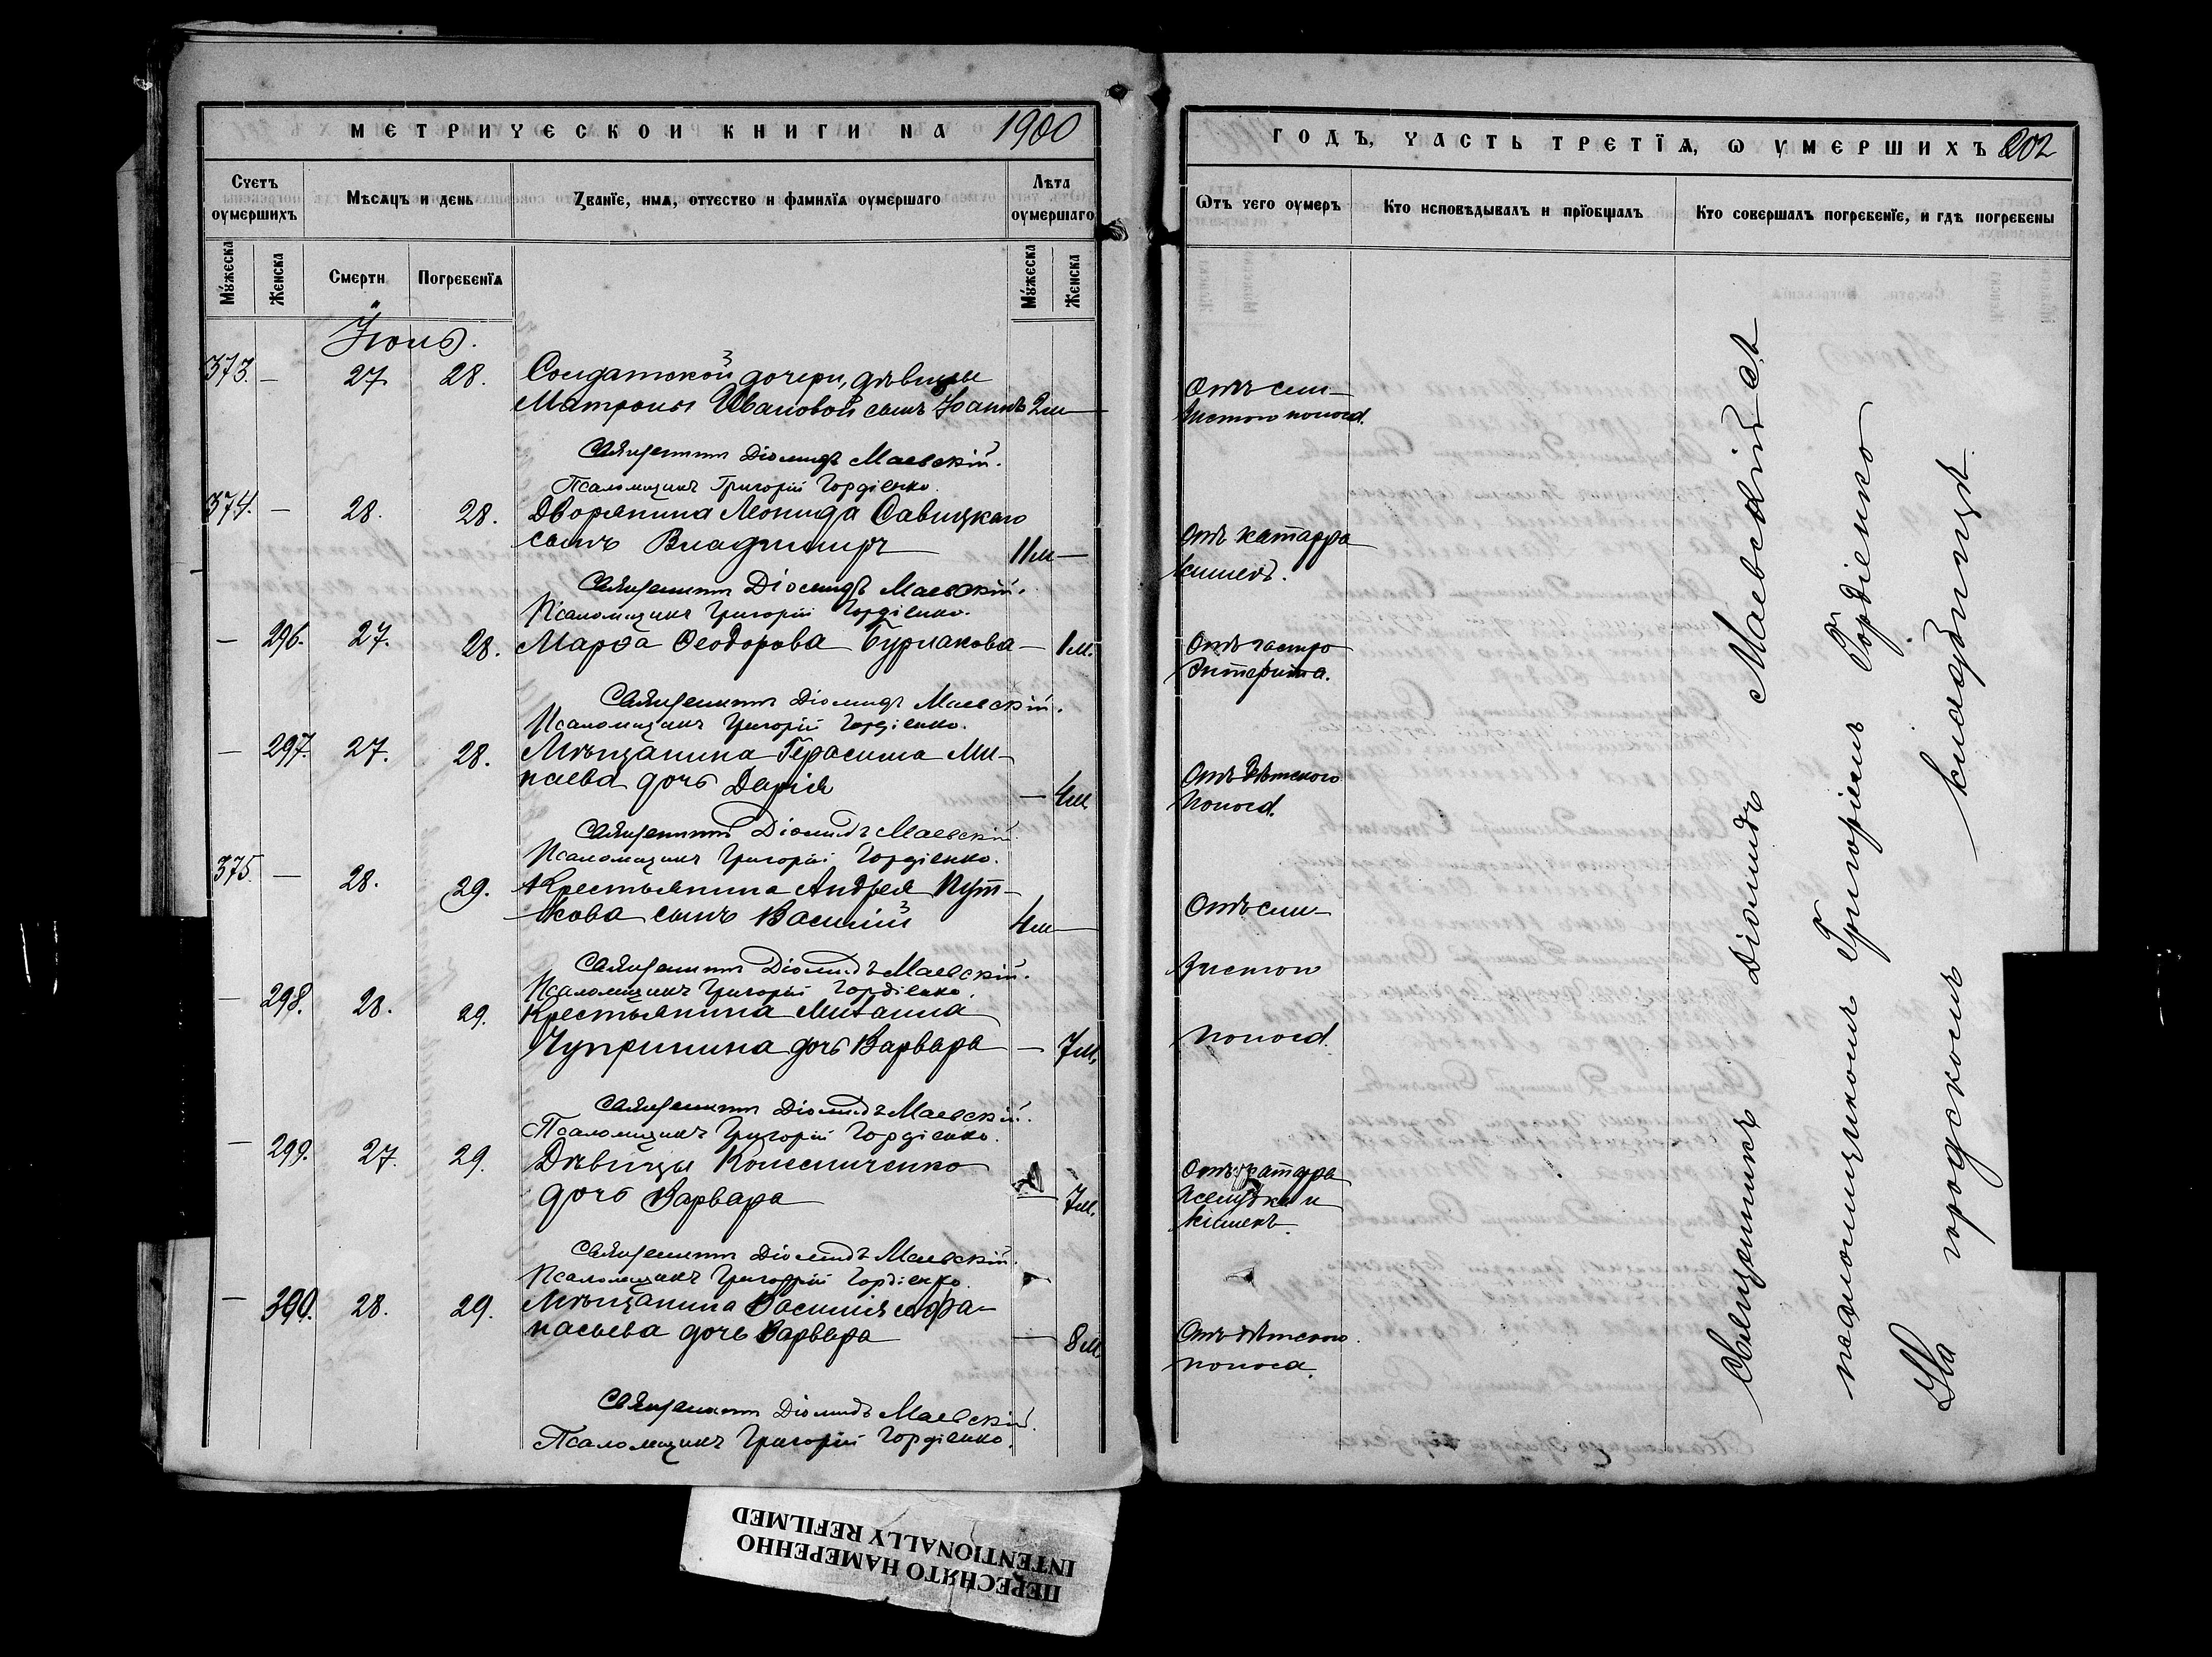 МЕТРИЧЕСКОЙ КНИГИ НА 1900
Счетъ оумершихъ
Мѣсяцъ и день
Званїе, имя, отчество и фамилїя оумершаго
Лѣта оумершаго
Мужеска
Женска
Смерти
Погребенїя
Мужеска
Женска
Іюль.
373. — 27. 28. Солдатской дочери, дѣвицы
Матроны Ивановой сынъ Іоаннъ 2м —
Священникъ Діомидъ Маевскій.
Псаломщикъ Григорій Гордіенко.
374. — 28. 28. Дворянина Леонида Савицкаго
сынъ Владимиръ 11м —
Священникъ Діомидъ Маевскій.
Псаломщикъ Григорій Гордіенко.
— 296. 27. 28. Марѳа Ѳеодорова Бурлакова — 1м.
Священникъ Діомидъ Маевскій.
Псаломщикъ Григорій Гордіенко.
— 297. 27. 28. Мѣщанина Герасима Ми-
наева дочь Дарія — 4м
Священникъ Діомидъ Маевскій.
Псаломщикъ Григорій Гордіенко.
375. — 28. 29. Крестьянина Андрея Пут-
кова сынъ Василій 4м —
Священникъ Діомидъ Маевскій.
Псаломщикъ Григорій Гордіенко.
— 298. 28. 29. Крестьянина Михаила
Чуприна дочь Варвара — 7м.
Священникъ Діомидъ Маевскій.
Псаломщикъ Григорій Гордіенко.
— 299. 27. 29. Дѣвицы Колесниченко
дочь Варвара — 7м.
Священникъ Діомидъ Маевскій.
Псаломщикъ Григорій Гордіенко.
— 300. 28. 29. Мѣщанина Василія Афа-
насьева дочь Варвара — 8м
Священникъ Діомидъ Маевскій.
Псаломщикъ Григорій Гордіенко.
ГОДЪ, ЧАСТЬ ТРЕТЇЯ, Ѡ УМЕРШИХЪ 202
Ѿтъ чего оумеръ
Кто исповѣдывалъ и прїобщалъ
Кто совершалъ погребенїе, и гдѣ погребены
Отъ сли-
зистого поноса.
Отъ катарра
кишекъ.
Отъ гастро
энтерита.
Отъ дѣтского
поноса.
Отъ сли-
зистого
поноса.
Отъ катарра
желудка и
кишекъ.
Отъ дѣтского
поноса.
Священникъ Діомидъ Маевскій съ
псаломщикомъ Григоріемъ Гордіенко
На городскомъ кладбищѣ
ПЕРЕСНЯТО НАМЕРЕННО
INTENTIONALLY REFILMED